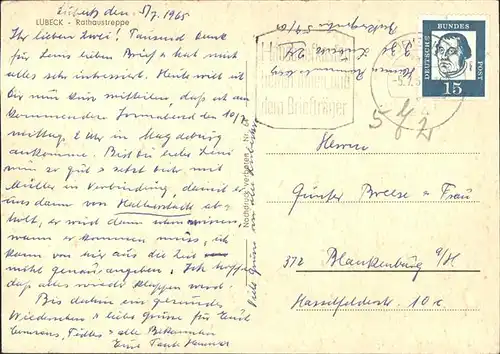 LÜBECK - Rathaustreppe
Lübeck den 5/7. 1965
Ihr lieben zwei! Tausend Dank
für Euern lieben Brief, hat mich
alles sehr interessiert. Heute will ich
Dir nun kurz mitteilen, daß am
kommenden Sonnabend den 10/7.
mittag, 2 Uhr in Magdeburg
ankomme. Bist Du lieber
nun so gut & setzt Dich mit
Müller in Verbindung, damit er
uns dann von Halberstadt ab-
holt, er wird dann schon wissen,
wann er kommen muss, ich
kann von hier aus die Zeit
nicht genau angeben. Ich hoffe
daß alles wieder klappen wird.
Bis dahin ein gesundes
Wiedersehen & liebe Grüsse für Euch
& alle Bekannten
Eure Tante
Viele Grüsse an alle
Nachdruck verboten Nr.
3 Lübeck
dem Briefträger
DEUTSCHE BUNDES POST
15
Herrn
Günter Breese & Frau
372 Blankenburg a/H
Hasselfelderstr. 10 c.